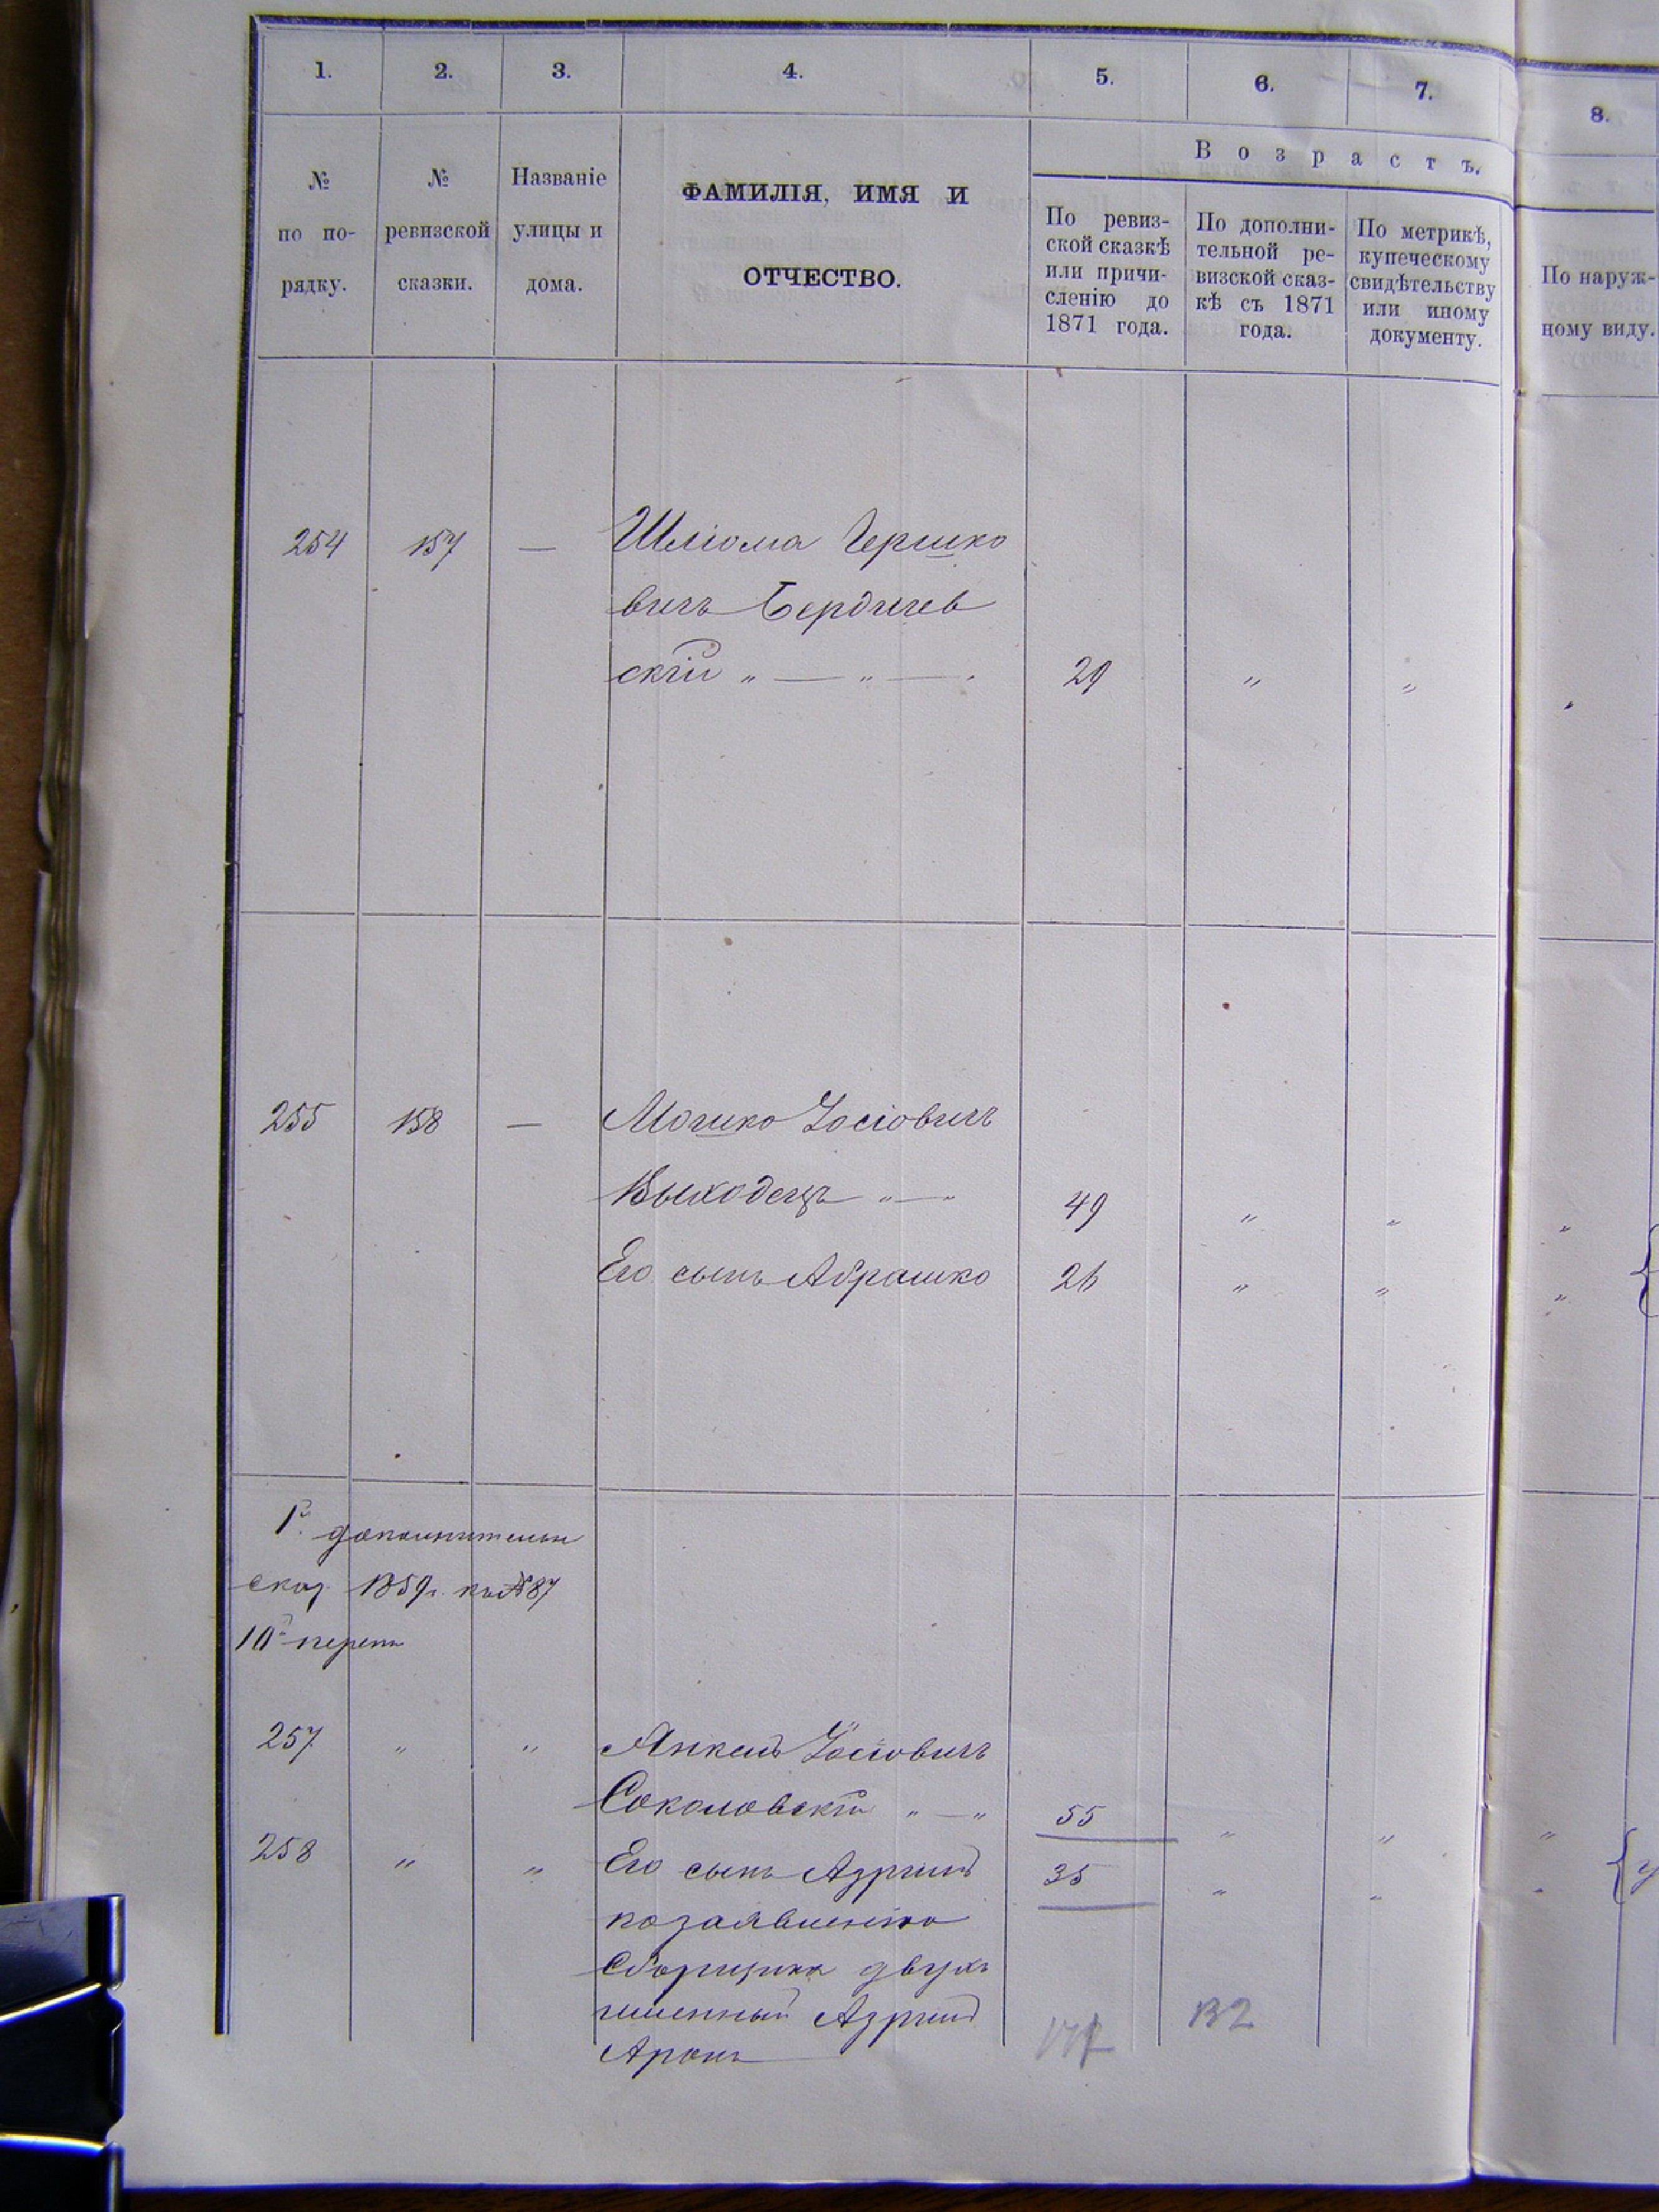 1. 2. 3. 4. 5. 6. 7. 8.
В о з р а с т ъ.
№
по по-
рядку.
№
ревизской
сказки.
Названіе
улицы и
дома.
ФАМИЛІЯ, ИМЯ И
ОТЧЕСТВО.
По ревиз-
ской сказкѣ
или причи-
сленію до
1871 года.
По дополни-
тельной ре-
визской сказ-
кѣ съ 1871
года.
По метрикѣ,
купеческому
свидѣтельству
или иному
документу.
По наруж-
ному виду.
254 157 — Шліома Гершко
вичъ Бердичев
скій „ — „ — 29 „ „ „
255 158 — Мошко Іосіовичъ
Выходецъ „ — „ 49 „ „ „
Его сынъ Абрашко 26 „ „ „
сказ. 1859 г. по № 87
257 „ „ Янкель Іосіовичъ
Соколовскій „ — „ 55 „ „ „
258 „ „ Его сынъ Азриль 35 „ „ „
по заявленію
Сборщика двухъ
именный Азриль
Аронъ
132